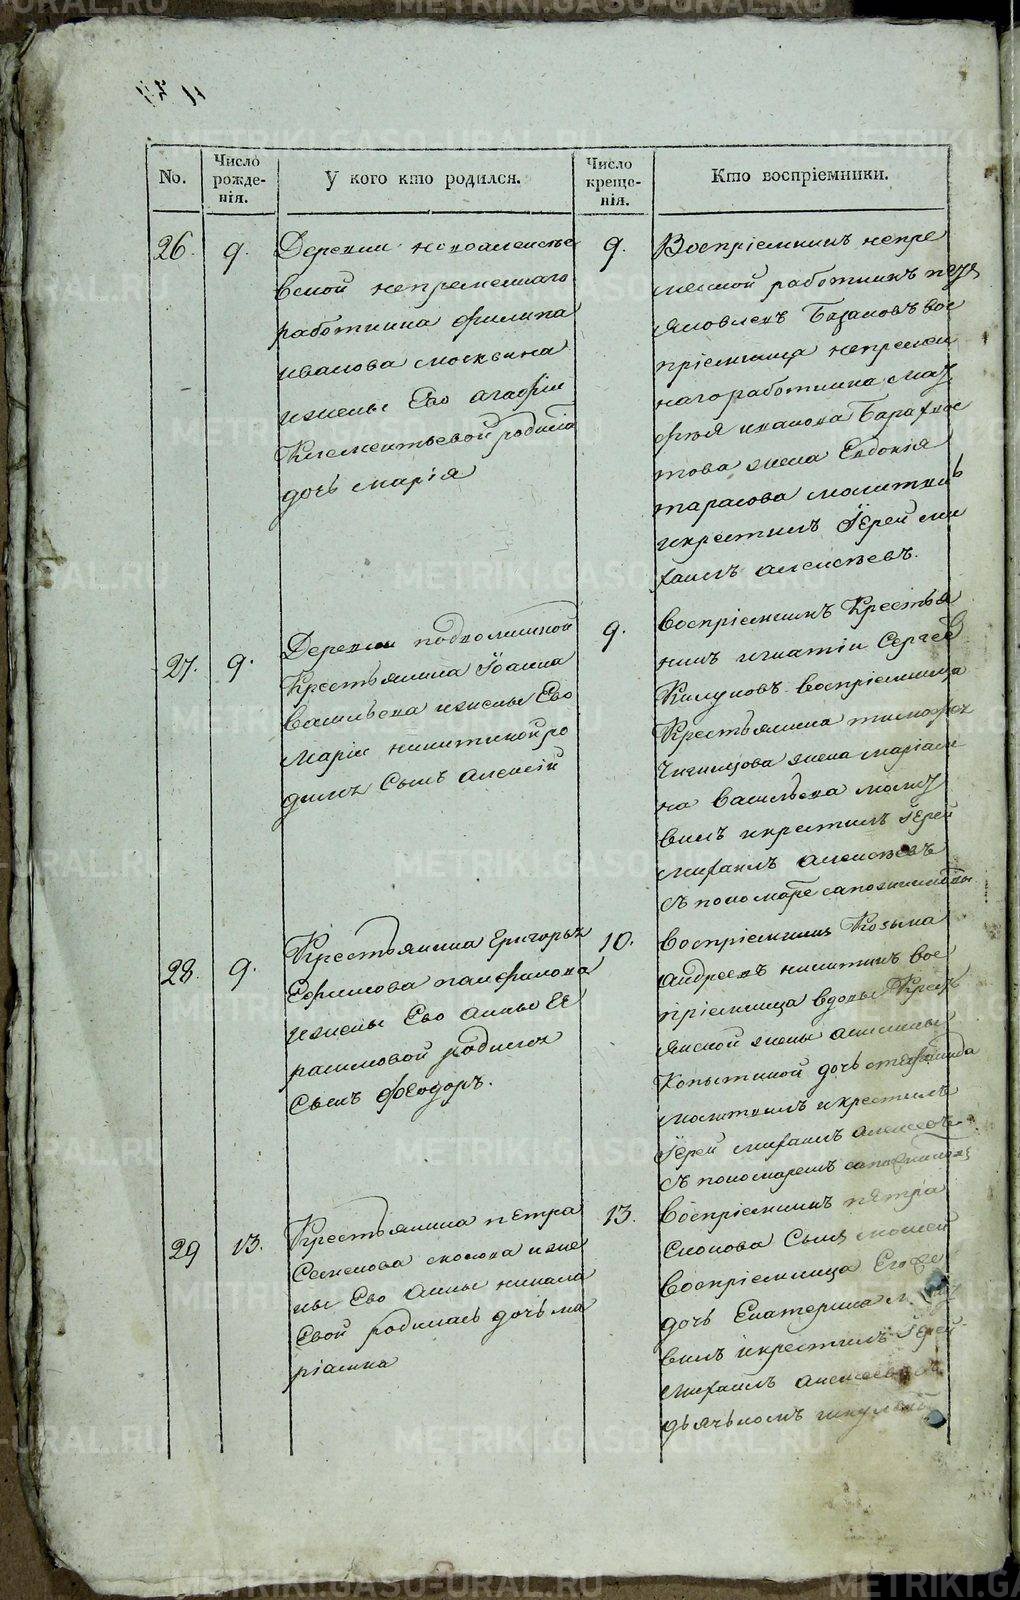 No.
Число рожде-нія.
У кого кто родился.
Число креще-нія.
Кто воспріемники.
26.
9.
Деревни новоалексѣе
вской непременнаго
работника филипа
иванова москвина
ижены Ево агафіи
Клементьевой родила
дочь марія
9.
Воспріемникъ непре
менной работникъ
яковлевъ Базановъ вос
пріемница непремен
наго работника мат
фея иванова
това жена Евдокія
тарасова молитвилъ
икрестилъ Іерей ми
хаилъ алексѣевъ.
27.
9.
Деревни подволошной
Крестьянина Іоанна
Васильева ижены Ево
маріи никитиной ро
дился Сынъ алексій
9.
воспріемникъ Крестья
нинъ игнатіи Сергѣе
воспріемница
Крестьянина тимофея
жена маріам
на Васильева молит
вилъ икрестилъ Іерей
михаилъ алексѣевъ
съ пономаремъ
28.
9.
Крестьянина григорья
Ефимова панфилова
ижены Ево анны Ге
расимовой родился
Сынъ феодоръ.
10.
воспріемникъ Козьма
андреевъ никитинъ вос
пріемница вдовы Кресть
янской жены
Копытиной дочь степанида
молитвилъ икрестилъ
Іерей михаилъ алексеевъ
съ пономаремъ
29
13.
Крестьянина пЕтра
Семенова скокова иже
ны Ево анны никола
Евой родилась дочь ма
ріамна
13.
воспріемникъ пЕтра
Скокова Сынъ моисей
воспріемница
дочь Екатерина
вилъ икрестилъ Іерей
михаилъ алексеевъ
дьячькомъ
METRIKI.GASO-URAL.RU